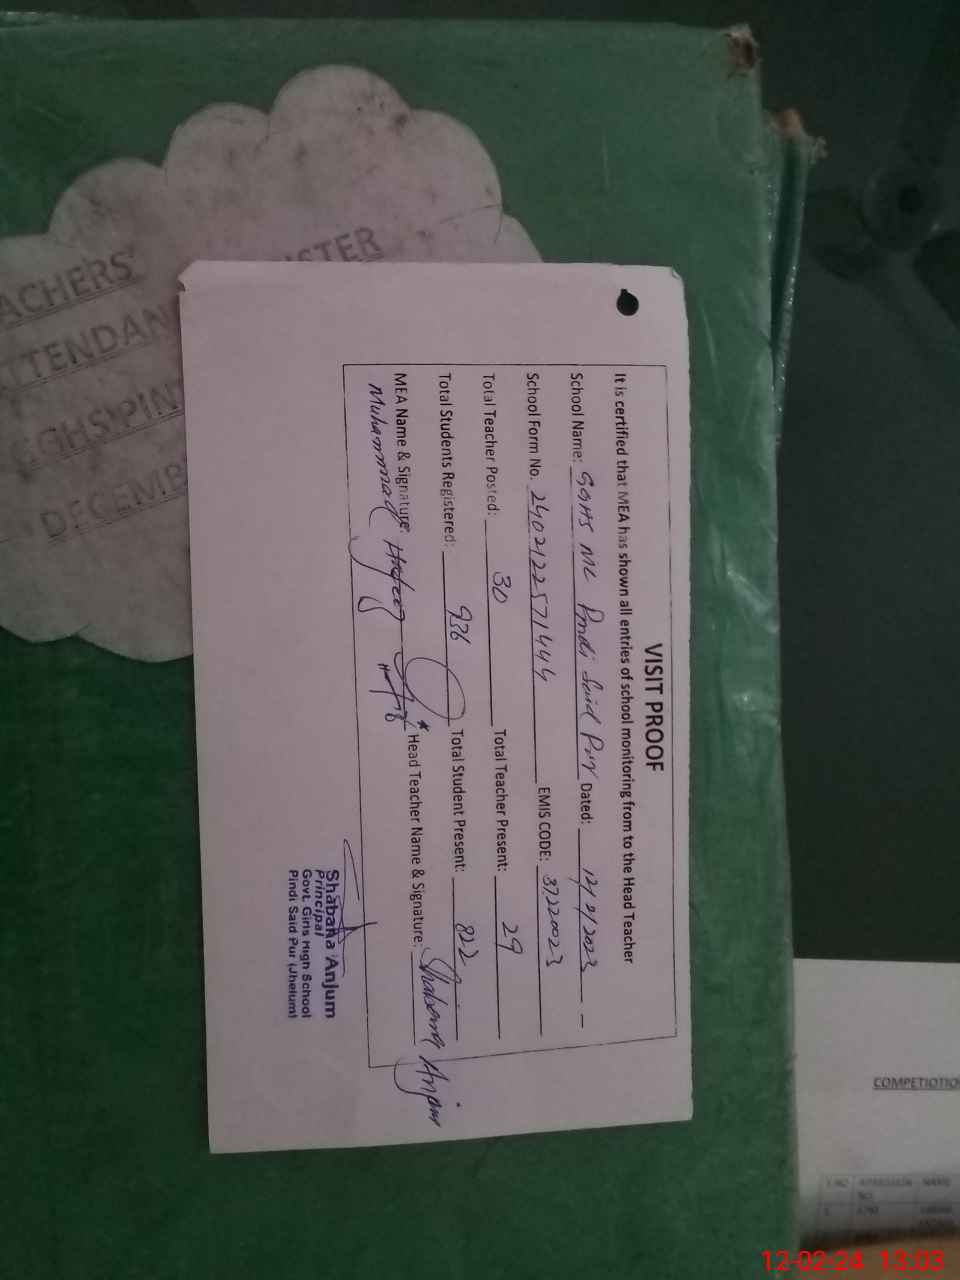 TEACHERS'
ATTENDAN
ISTER
GGHS PIN
DECEMB
VISIT PROOF
It is certified that MEA has shown all entries of school monitoring from to the Head Teacher
School Name: GGHS ML Pindi Said Pur Dated: 12/2/2023
School Form No. 2402122571444 EMIS CODE: 37220023
Total Teacher Posted: 30 Total Teacher Present: 29
Total Students Registered: 936 Total Student Present: 822
MEA Name & Signature: Head Teacher Name & Signature: Shabana Anjum
Muhammad Hafeez
Shabana Anjum
Principal
Govt. Girls High School
Pindi Said Pur (Jhelum)
COMPETIOTIO
S.NO ADMISSION NO. NAME
12-02-24 13:03